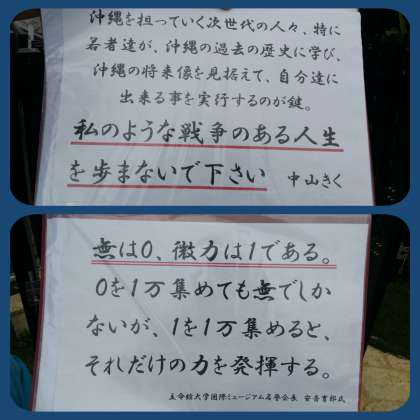 沖縄を担っていく次世代の人々、特に
若者達が、沖縄の過去の歴史に学び、
沖縄の将来像を見据えて、自分達に
出来る事を実行するのが鍵。
私のような戦争のある人生
を歩まないで下さい 中山きく
無は0、微力は1である。
0を1万集めても無でしか
ないが、1を1万集めると、
それだけの力を発揮する。
立命館大学国際ミュージアム名誉会長 安斎育郎氏